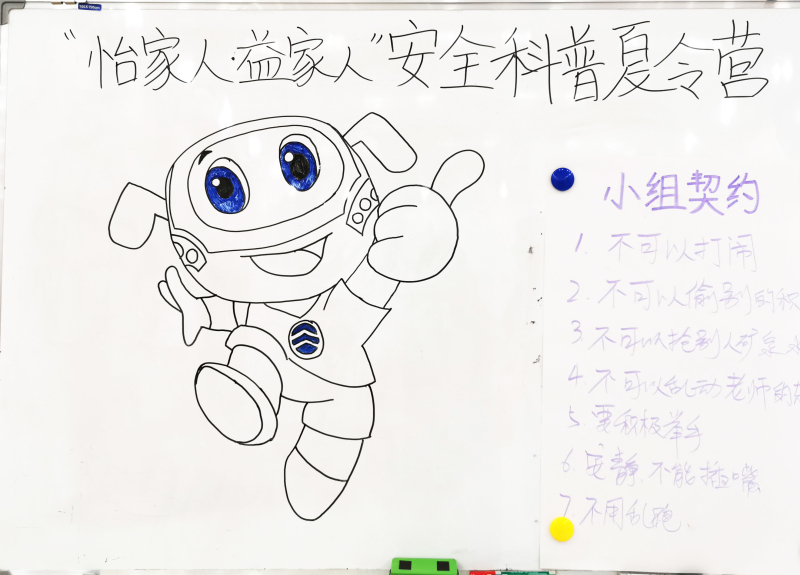 “怡家人·益家人”安全科普夏令营
小组契约
1. 不可以打闹
2. 不可以偷别的积
3 不可以抢别人矿泉水
4. 不可以乱动老师的
5 要积极举手
6. 安静.不能插嘴
7. 不用乱跑.